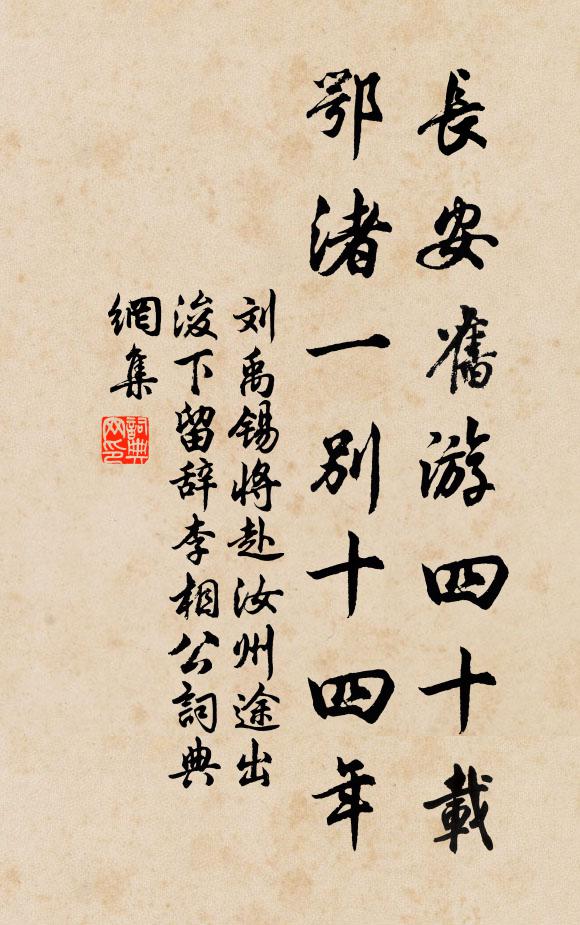 長安舊游四十載
鄂渚一別十四年
刘禹锡将赴汝州途出
浚下留辞李相公詞典
網集
詞典
网印